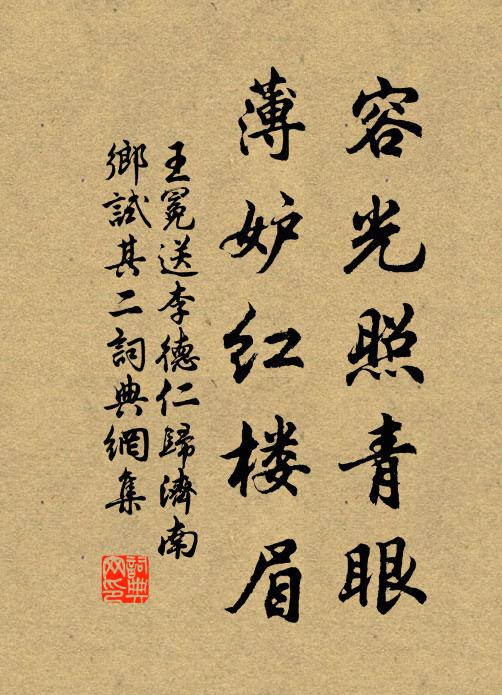 容光照青眼
薄妒红楼眉
王冕送李德仁歸濟南
鄉試其二詞典網集
詞典网印